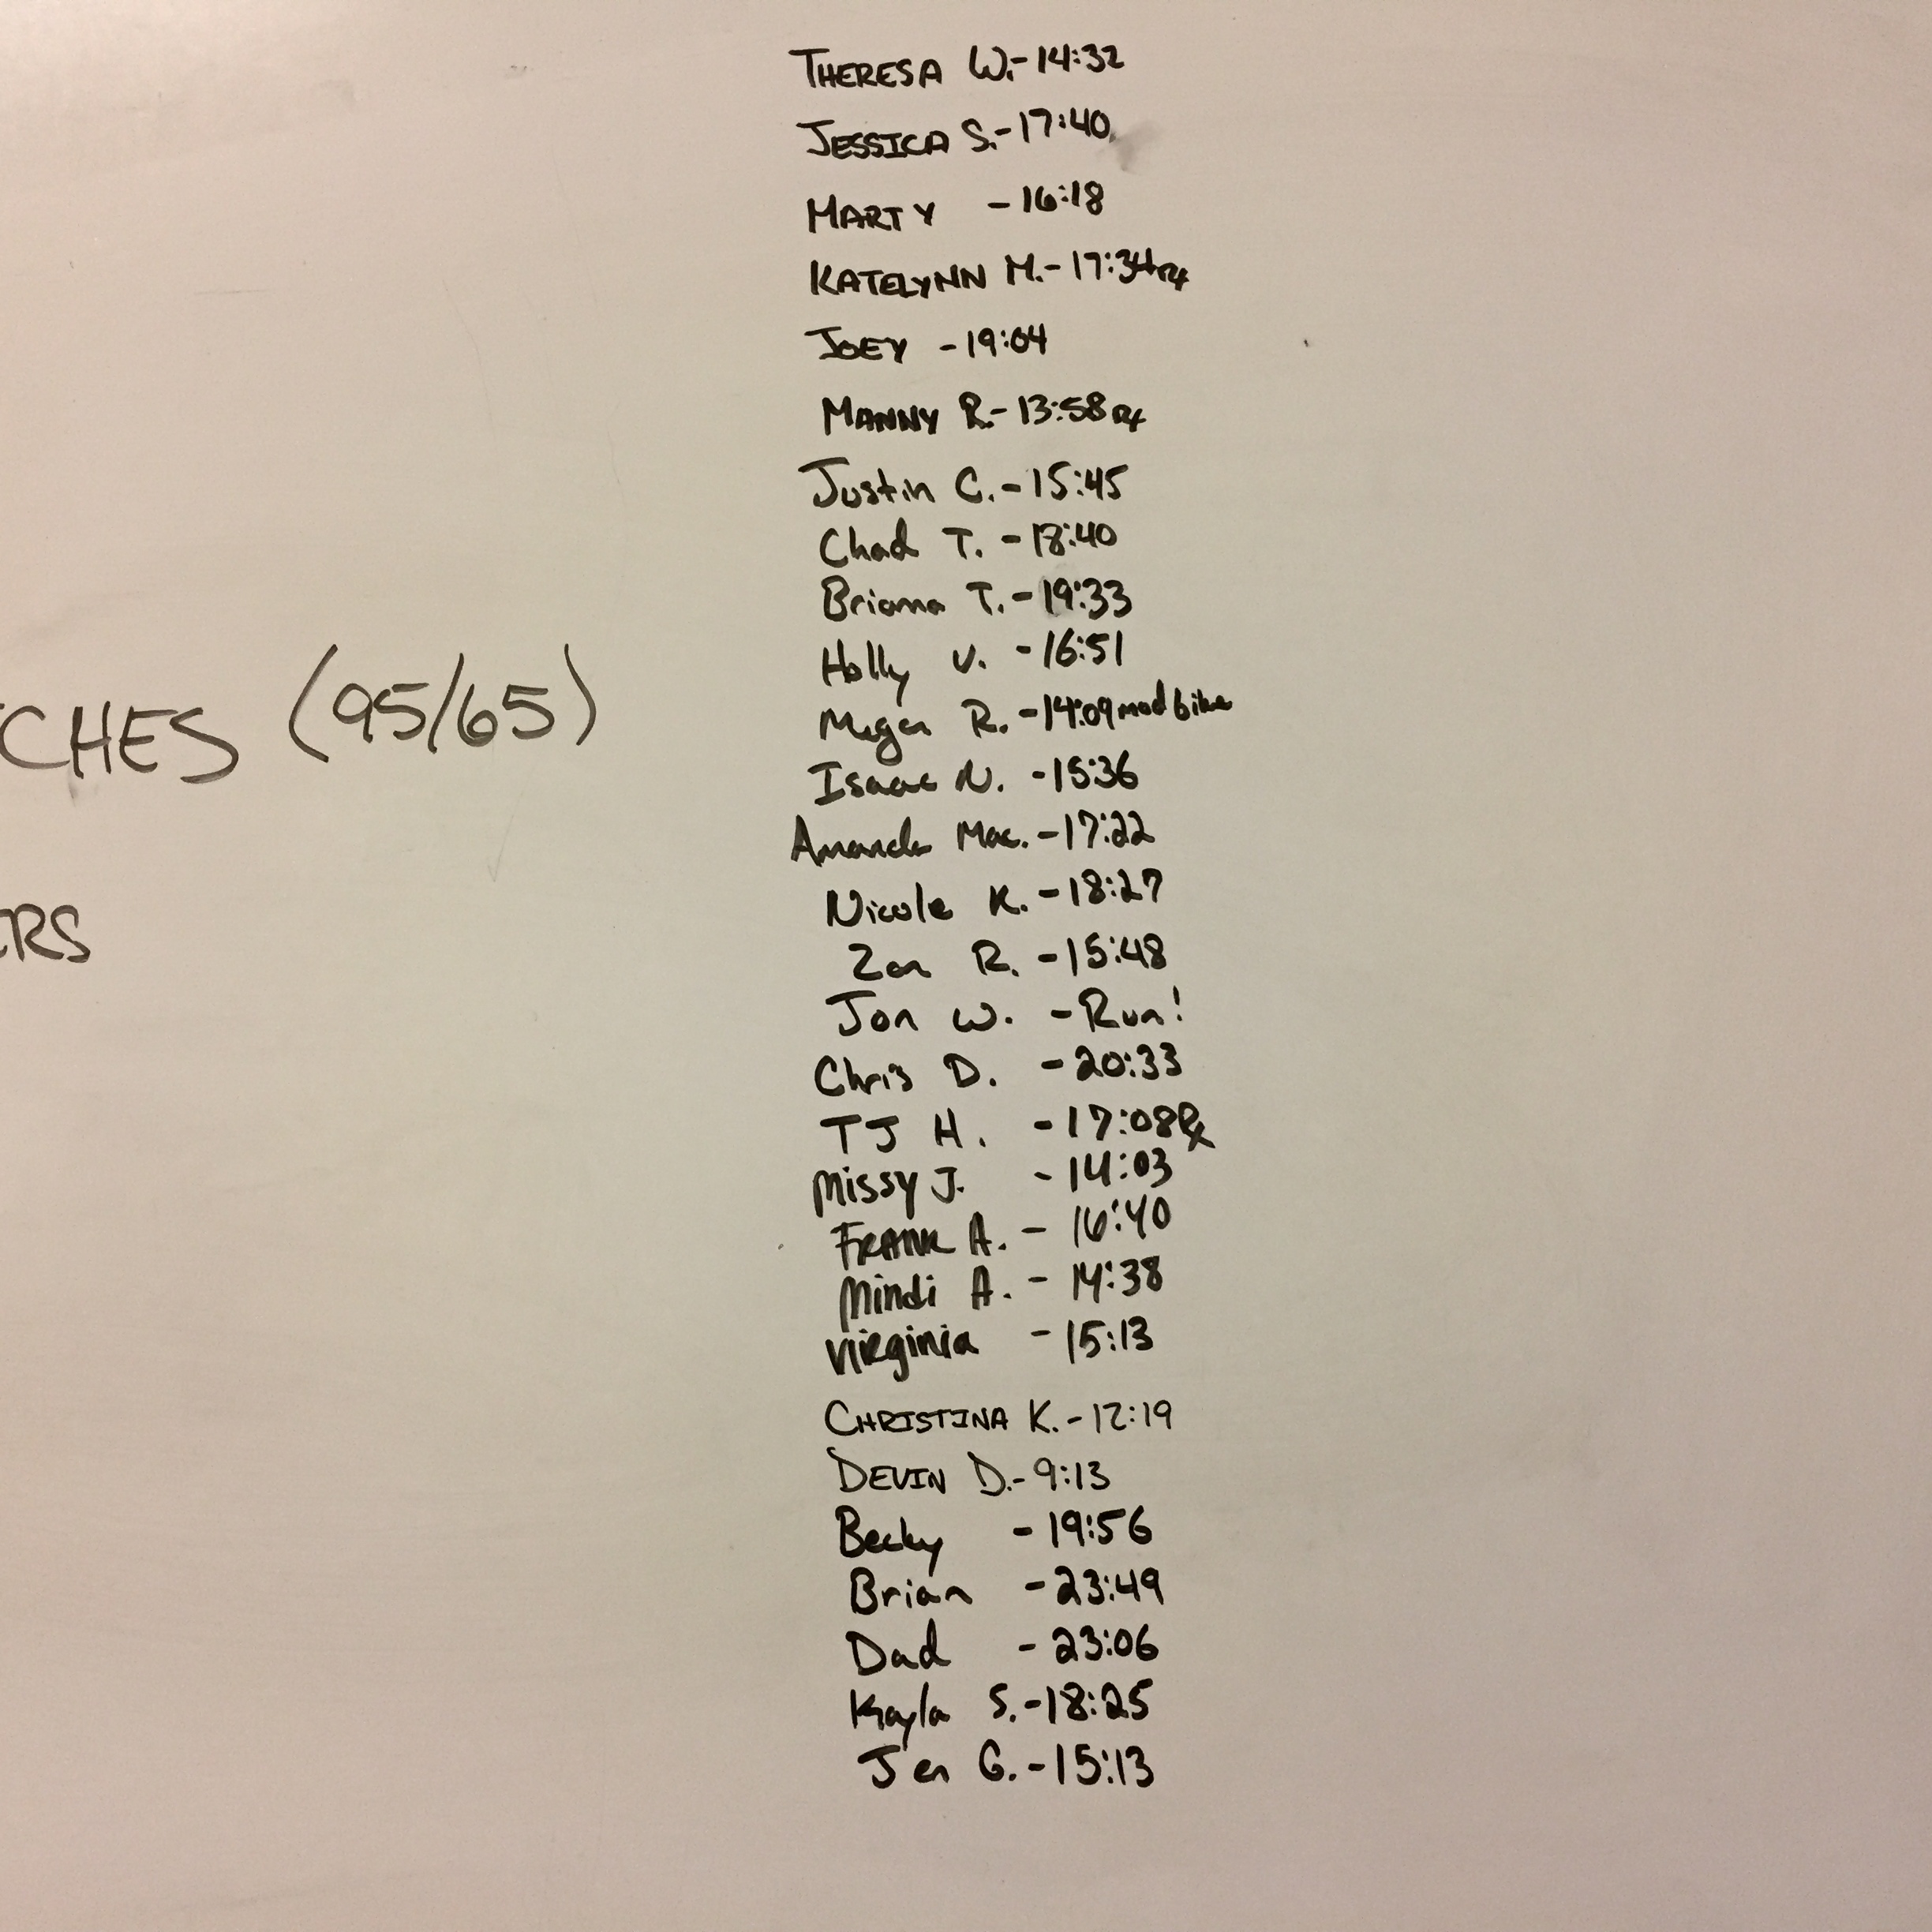 THERESA W.-14:32
JESSICA S.-17:40
MARTY -16:18
KATELYNN M.-17:34rx
JOEY -19:04
MANNY R.-13:58rx
Justin C.-15:45
Chad T. -18:40
Briana T.-19:33
Holly V. -16:51
CHES (95/65)
Megan R. -14:09 mod bike
Isaac N. -15:36
Amanda Mac. -17:22
Nicole K. -18:27
ERS
Zan R. -15:48
Jon W. -Run!
Chris D. -20:33
TJ H. -17:08Rx
Missy J. -14:03
FRANK A. - 16:40
Mindi A. - 14:38
Virginia -15:13
CHRISTINA K.-12:19
DEVIN D.-9:13
Becky -19:56
Brian -23:49
Dad -23:06
Kayla S.-18:25
Jen G.-15:13